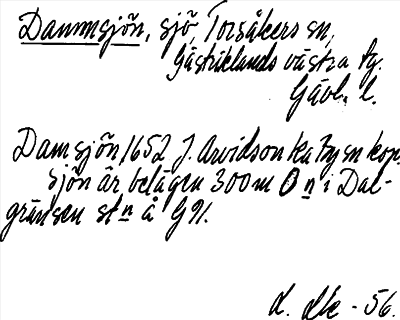 Dammsjön, sjö, Torsåkers sn,
Gästriklands västra tg.
Gävl. l.
Damsjön 1652 J. Arvidson Ka By sn kop.
Sjön är belägen 300 m O n i Dal-
gränsen st n å G91.
d. -56.